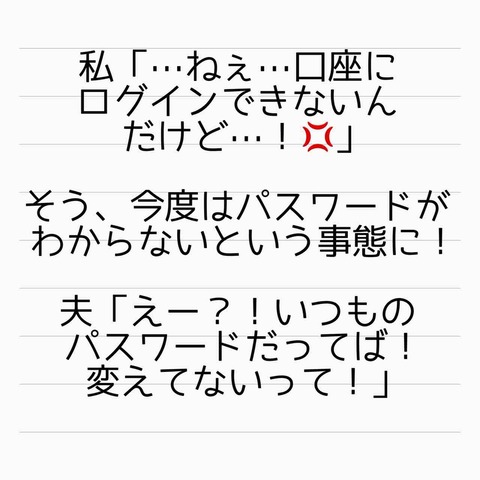 私「…ねぇ…口座に
ログインできないん
だけど…！💢」
そう、今度はパスワードが
わからないという事態に！
夫「えー？！いつもの
パスワードだってば！
変えてないって！」